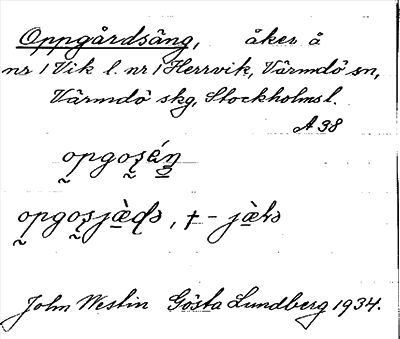 Oppgårdsäng, åker å
nr 1 Vik l. nr 1 Herrvik, Värmdö sn,
Värmdö skg, Stockholmsl.
A 38
John Westin Gösta Lundberg 1934.